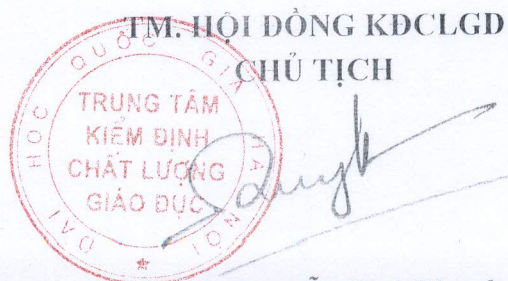 TM. HỘI ĐỒNG KĐCLGD
CHỦ TỊCH
ĐẠI HỌC QUỐC GIA HÀ NỘI
TRUNG TÂM
KIỂM ĐỊNH
CHẤT LƯỢNG
GIÁO DỤC